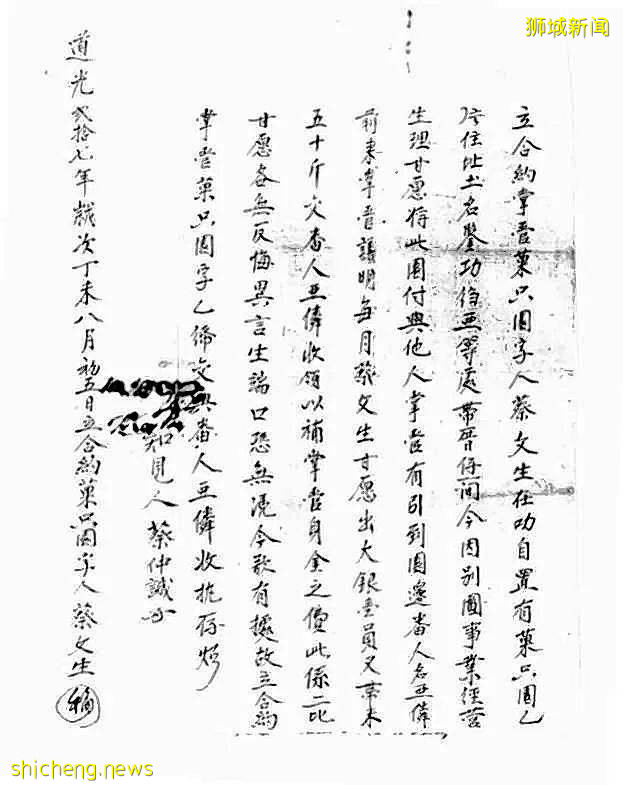 狮城新闻
立合約掌管菓只園字人蔡文生在叻自置有菓只園乙
住址土名鑒功等處帶厝伍间今因别圖事業經营
生理甘愿将此園付與他人掌管有引到園邊番人名亜僯
前來掌管議明每月蔡文生甘愿出大銀壹員又帶米
五十斤交番人亜僯收領以補掌管身金之價此係二比
甘愿各無反悔異言生端口恐無凴今欲有據故立合約
掌管菓只園字乙紙交與番人亜僯收执存炤
知見人蔡仲誠
道光貳拾七年歲次丁未八月初五日立合約菓只園字人蔡文生
shicheng.news